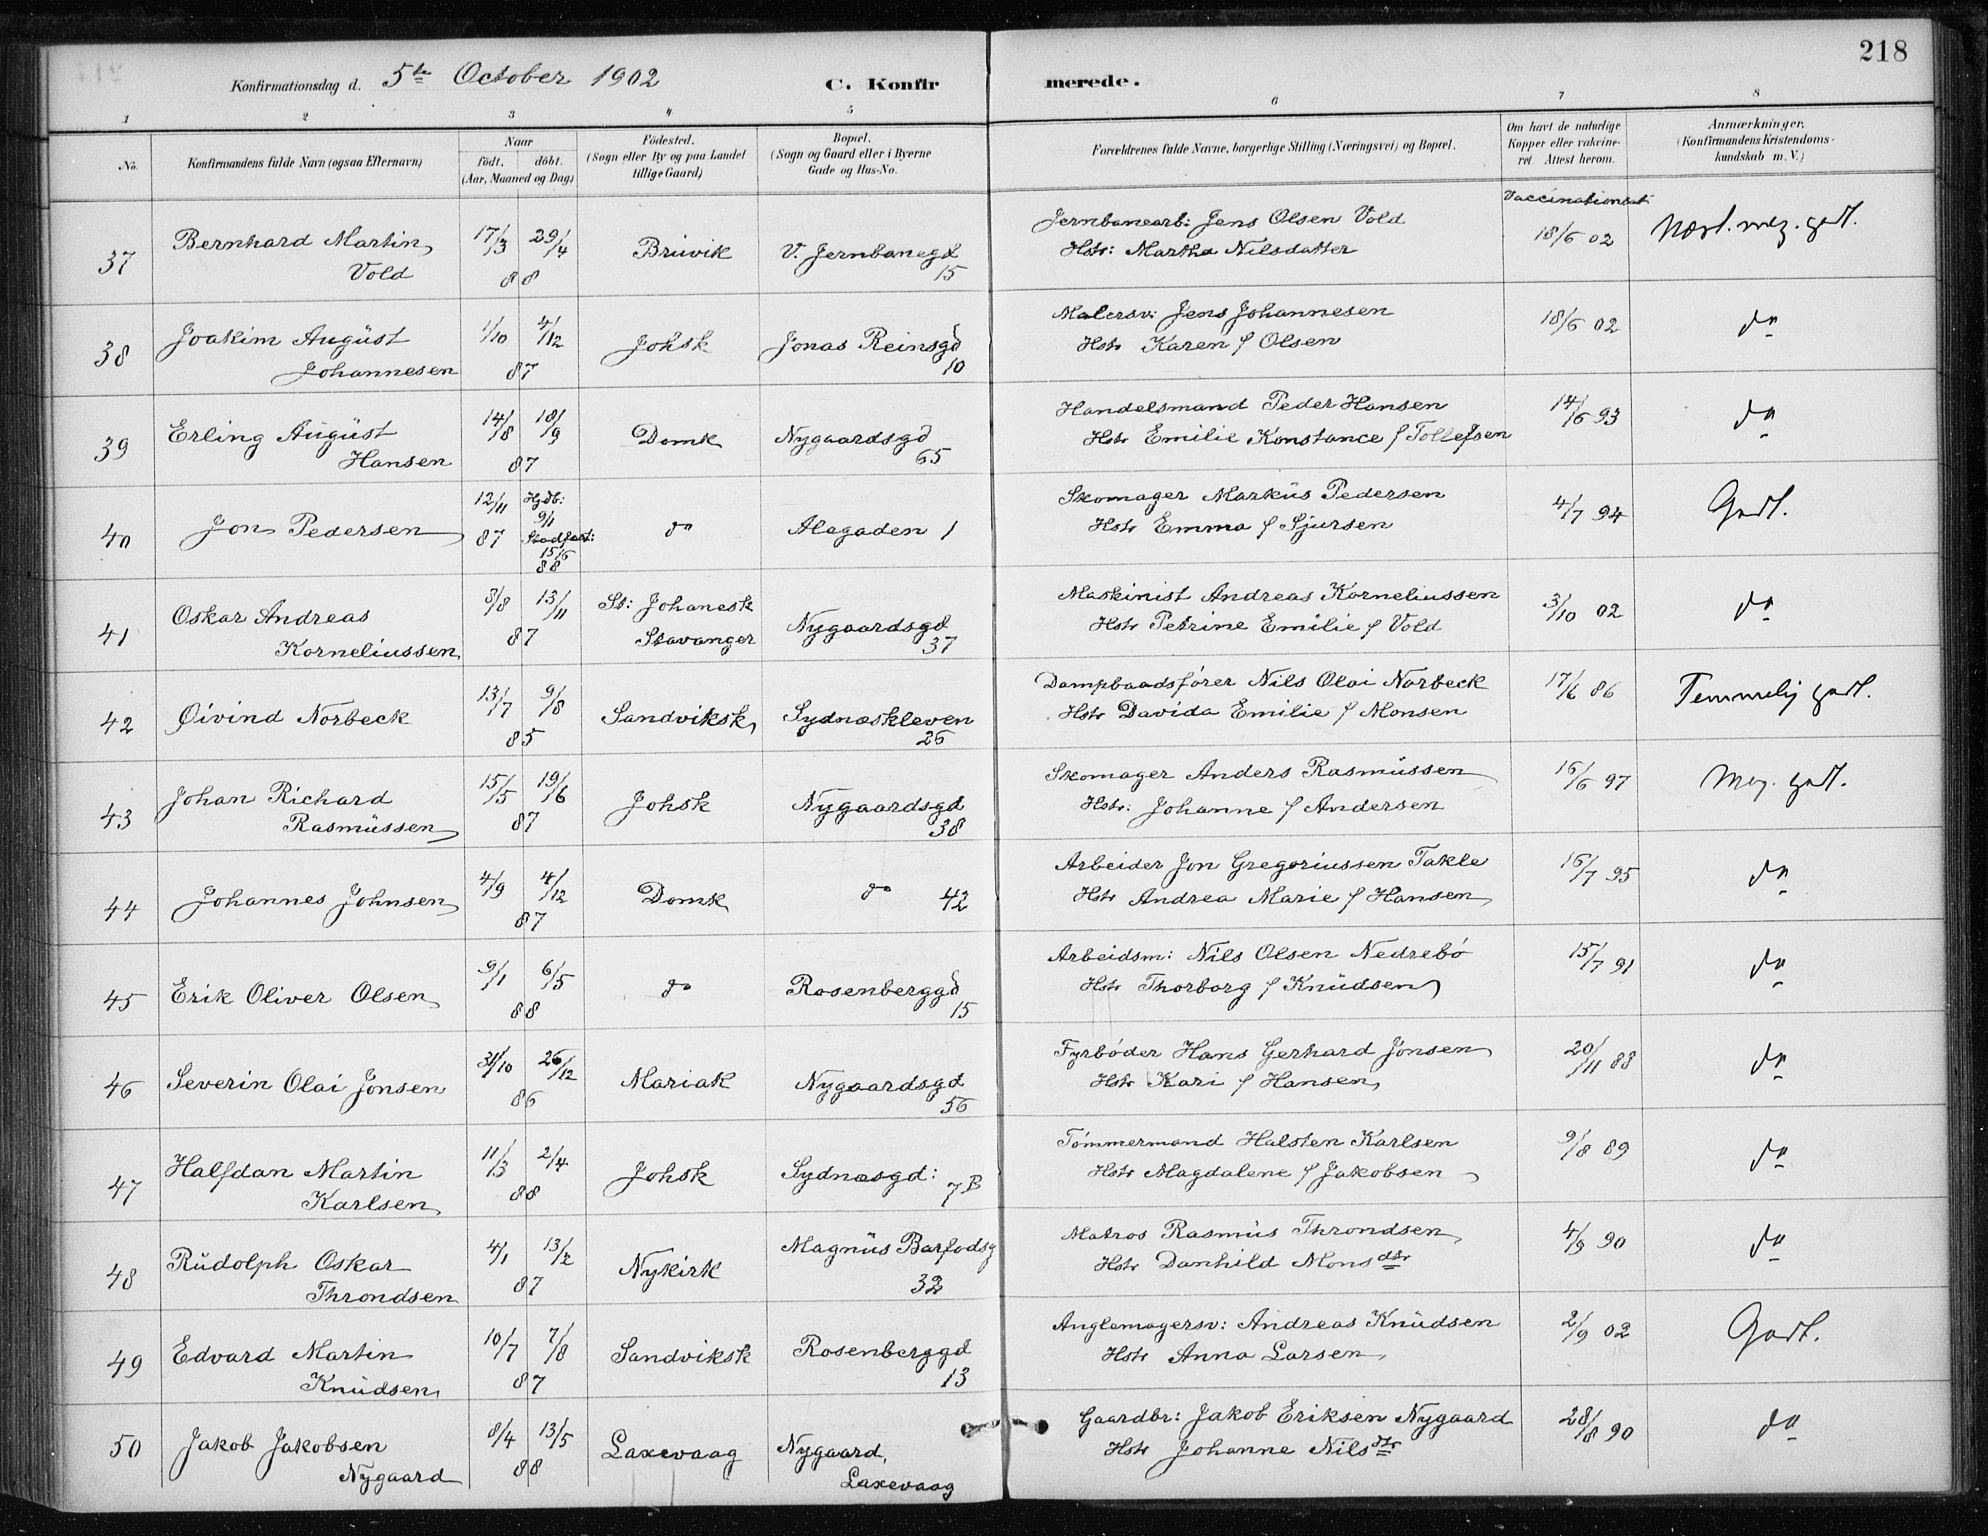 218
Konfirmationsdag d. 5te October 1902
C. Konfirmerede.
1 2 3 4 5 6 7 8
No.
Konfirmandens fulde Navn (ogsaa Efternavn)
Naar
født. døbt.
(Aar, Maaned og Dag)
Fødested.
(Sogn eller By og paa Landet
tillige Gaard)
Bopæl.
(Sogn og Gaard eller i Byerne
Gade og Hus-No.
Forældrenes fulde Navne, borgerlige Stilling (Næringsvei) og Bopæl.
Om havt de naturlige
Kopper eller vakcine-
ret. Attest herom.
Anmærkninger.
(Konfirmandens Kristendoms-
kundskab m. V.)
37 Bernhard Martin 17/3 29/4 Bruvik V. Jernbanegd Jernbanearb: Jens Olsen Vold Vaccinationsat
Vold 88 15 Hstr: Martha Nilsdatter 18/6 02 Næst. meg. godt.
38 Joakim August 1/10 4/12 Johsk Jonas Reinsgd Malersv: Jens Johannesen 18/6 02 do
Johannesen 87 10 Hstr Karen f Olsen
39 Erling August 14/8 18/9 Domk Nygaardsgd Handelsmand Peder Hansen 14/6 93 do
Hansen 87 65 Hstr Emilie Konstance f Tollefsen
40 Jon Pedersen 12/11 87 Hjdb: 9/1 Stadfæst: 15/6 88 do Alegaden 1 Skomager Markus Pedersen 4/7 94 Godt.
Hstr Emma f Sjursen
41 Oskar Andreas 3/8 13/11 St: Johanesk Nygaardsgd Maskinist Andreas Korneliussen 3/10 02 do
Korneliussen 87 Stavanger 37 Hstr Petrine Emilie f Vold
42 Øivind Norbeck 13/7 9/8 Sandviksk Sydneskleven Dampbaadsfører Nils Olai Norbeck 17/6 86 Temmelig godt.
85 26 Hstr Davida Emilie f Monsen
43 Johan Richard 15/5 19/6 Johsk Nygaardsgd Skomager Anders Rasmussen 16/6 97 Meg. godt.
Rasmussen 87 38 Hstr: Johanne f Andersen
44 Johannes Johnsen 4/9 4/12 Domk do 42 Arbeider Jon Gregoriussen Takle 16/7 95 do
87 Hstr Andrea Marie f Hansen
45 Erik Oliver Olsen 9/1 6/5 do Rosenberggd Arbeidsm: Nils Olsen Nedrebø 15/7 91 do
88 15 Hstr Thorborg f Knudsen
46 Severin Olai Jonsen 31/10 26/12 Mariak Nygaardsgd Fyrbøder Hans Gerhard Jonsen 20/11 88 do
86 56 Hstr Kari f Hansen
47 Halfdan Martin 11/3 2/4 Johsk Sydnæsgd: Tømmermand Halsten Karlsen 9/8 89 do
Karlsen 88 7B Hstr Magdalene f Jakobsen
48 Rudolph Oskar 4/1 13/2 Nykirk Magnus Barfodsg Matros Rasmus Throndsen 4/9 90 do
Throndsen 87 32 Hstr Danhild Monsdtr
49 Edvard Martin 10/7 7/8 Sandviksk Rosenberggd Anglemagersv: Andreas Knudsen 2/9 02 Godt.
Knudsen 87 13 Hstr Anna Larsen
50 Jakob Jakobsen 8/4 13/5 Laxevaag Nygaard, Gaardbr: Jakob Eriksen Nygaard 28/8 90 do
Nygaard 88 Laxevaag Hstr Johanne Nilsdtr